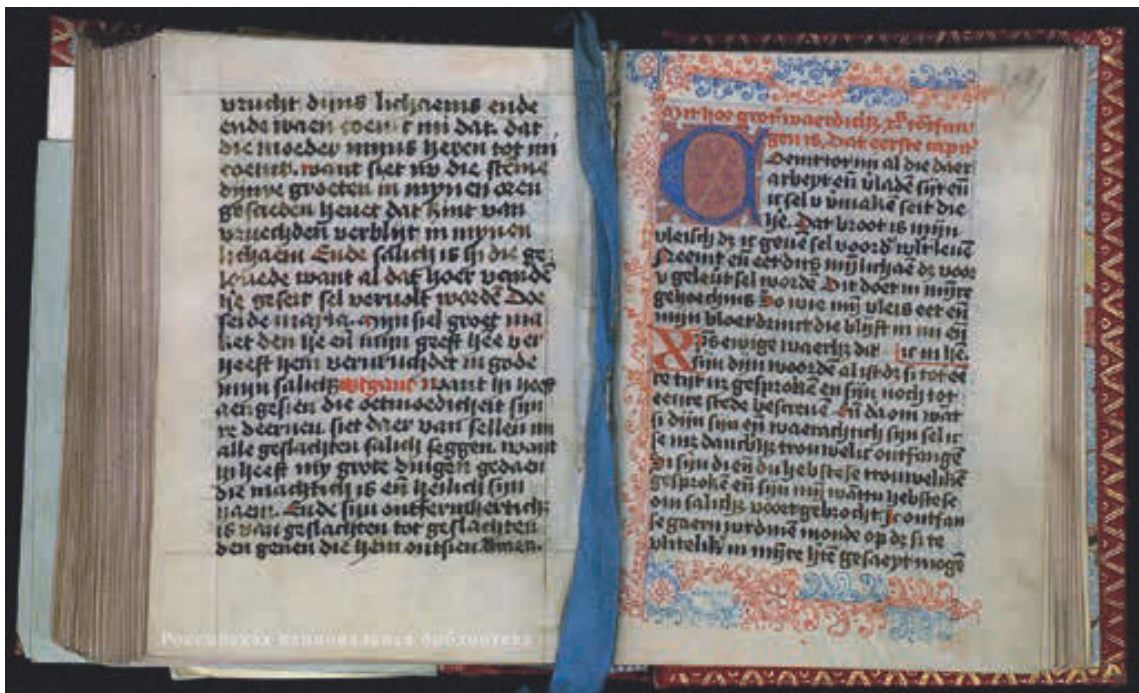 vrucht dijns lichaems ende
ende waen coemt mi dat. dat
die moeder mijns heren tot mi
coemt. want siet nv die steme
dijnre groeten in mynen oren
gesciedēn heuet dat kint van
vruechden verblijt in mynen
lichaem Ende salich is si die ge
louede want al dat hoer vandē
hē geseit sel veruolt wordē Doe
seide maria. mijn siel groet ma
ket den hē en mijn geest hee ver
heeft hem vervruchdet in gode
mijn salich want hi heeft
aengesien die oetmoedicheit sijn
re deernen. siet daer van sellen mi
alle geslachten salich seggen. want
hi heeft my grote dingen gedaen
die machtich is eñ heilich sijn
naem. Ende sijn ontfermhertich
is van geslachten tot geslachten
den genen die hem ontsien. Amen.
gen is. Dat eerste
Coemt tot mi al die daer
arbeyt eñ vladē sijt eñ
ic sel v vmakē seit die
hē. Dat broot is mijn
vleisch dz ic geuē sel voord' w'lt leuē
Neemt eñ eet dits mijn lichaē dz voor
v geleuert sel wordē Dit doet in mijnre
gehoechnis So wie mijn vleis eet eñ
mijn bloet drinct die blijft in mi eñ
ewige waerhz dit ic in hē.
sijn dijn woordē al ist dz si tot ee
re tijt niet gesprokē en sijn noch tot
eenre stede bescreuē Eñ daom wāt
si dijn sijn eñ waerachtich sijn sel ic
se mz danckbz trouwelic ontfangē
Si sijn di eñ du hebstse trouwelikē
gesprokē eñ sijn mij wāttu hebstse
om salichz voortgebrocht Ic ontfan
se gaern wt dinē monde op dz si te
vliteliker in mijnre htē gesaeyt mogē
Российская национальная библиотека